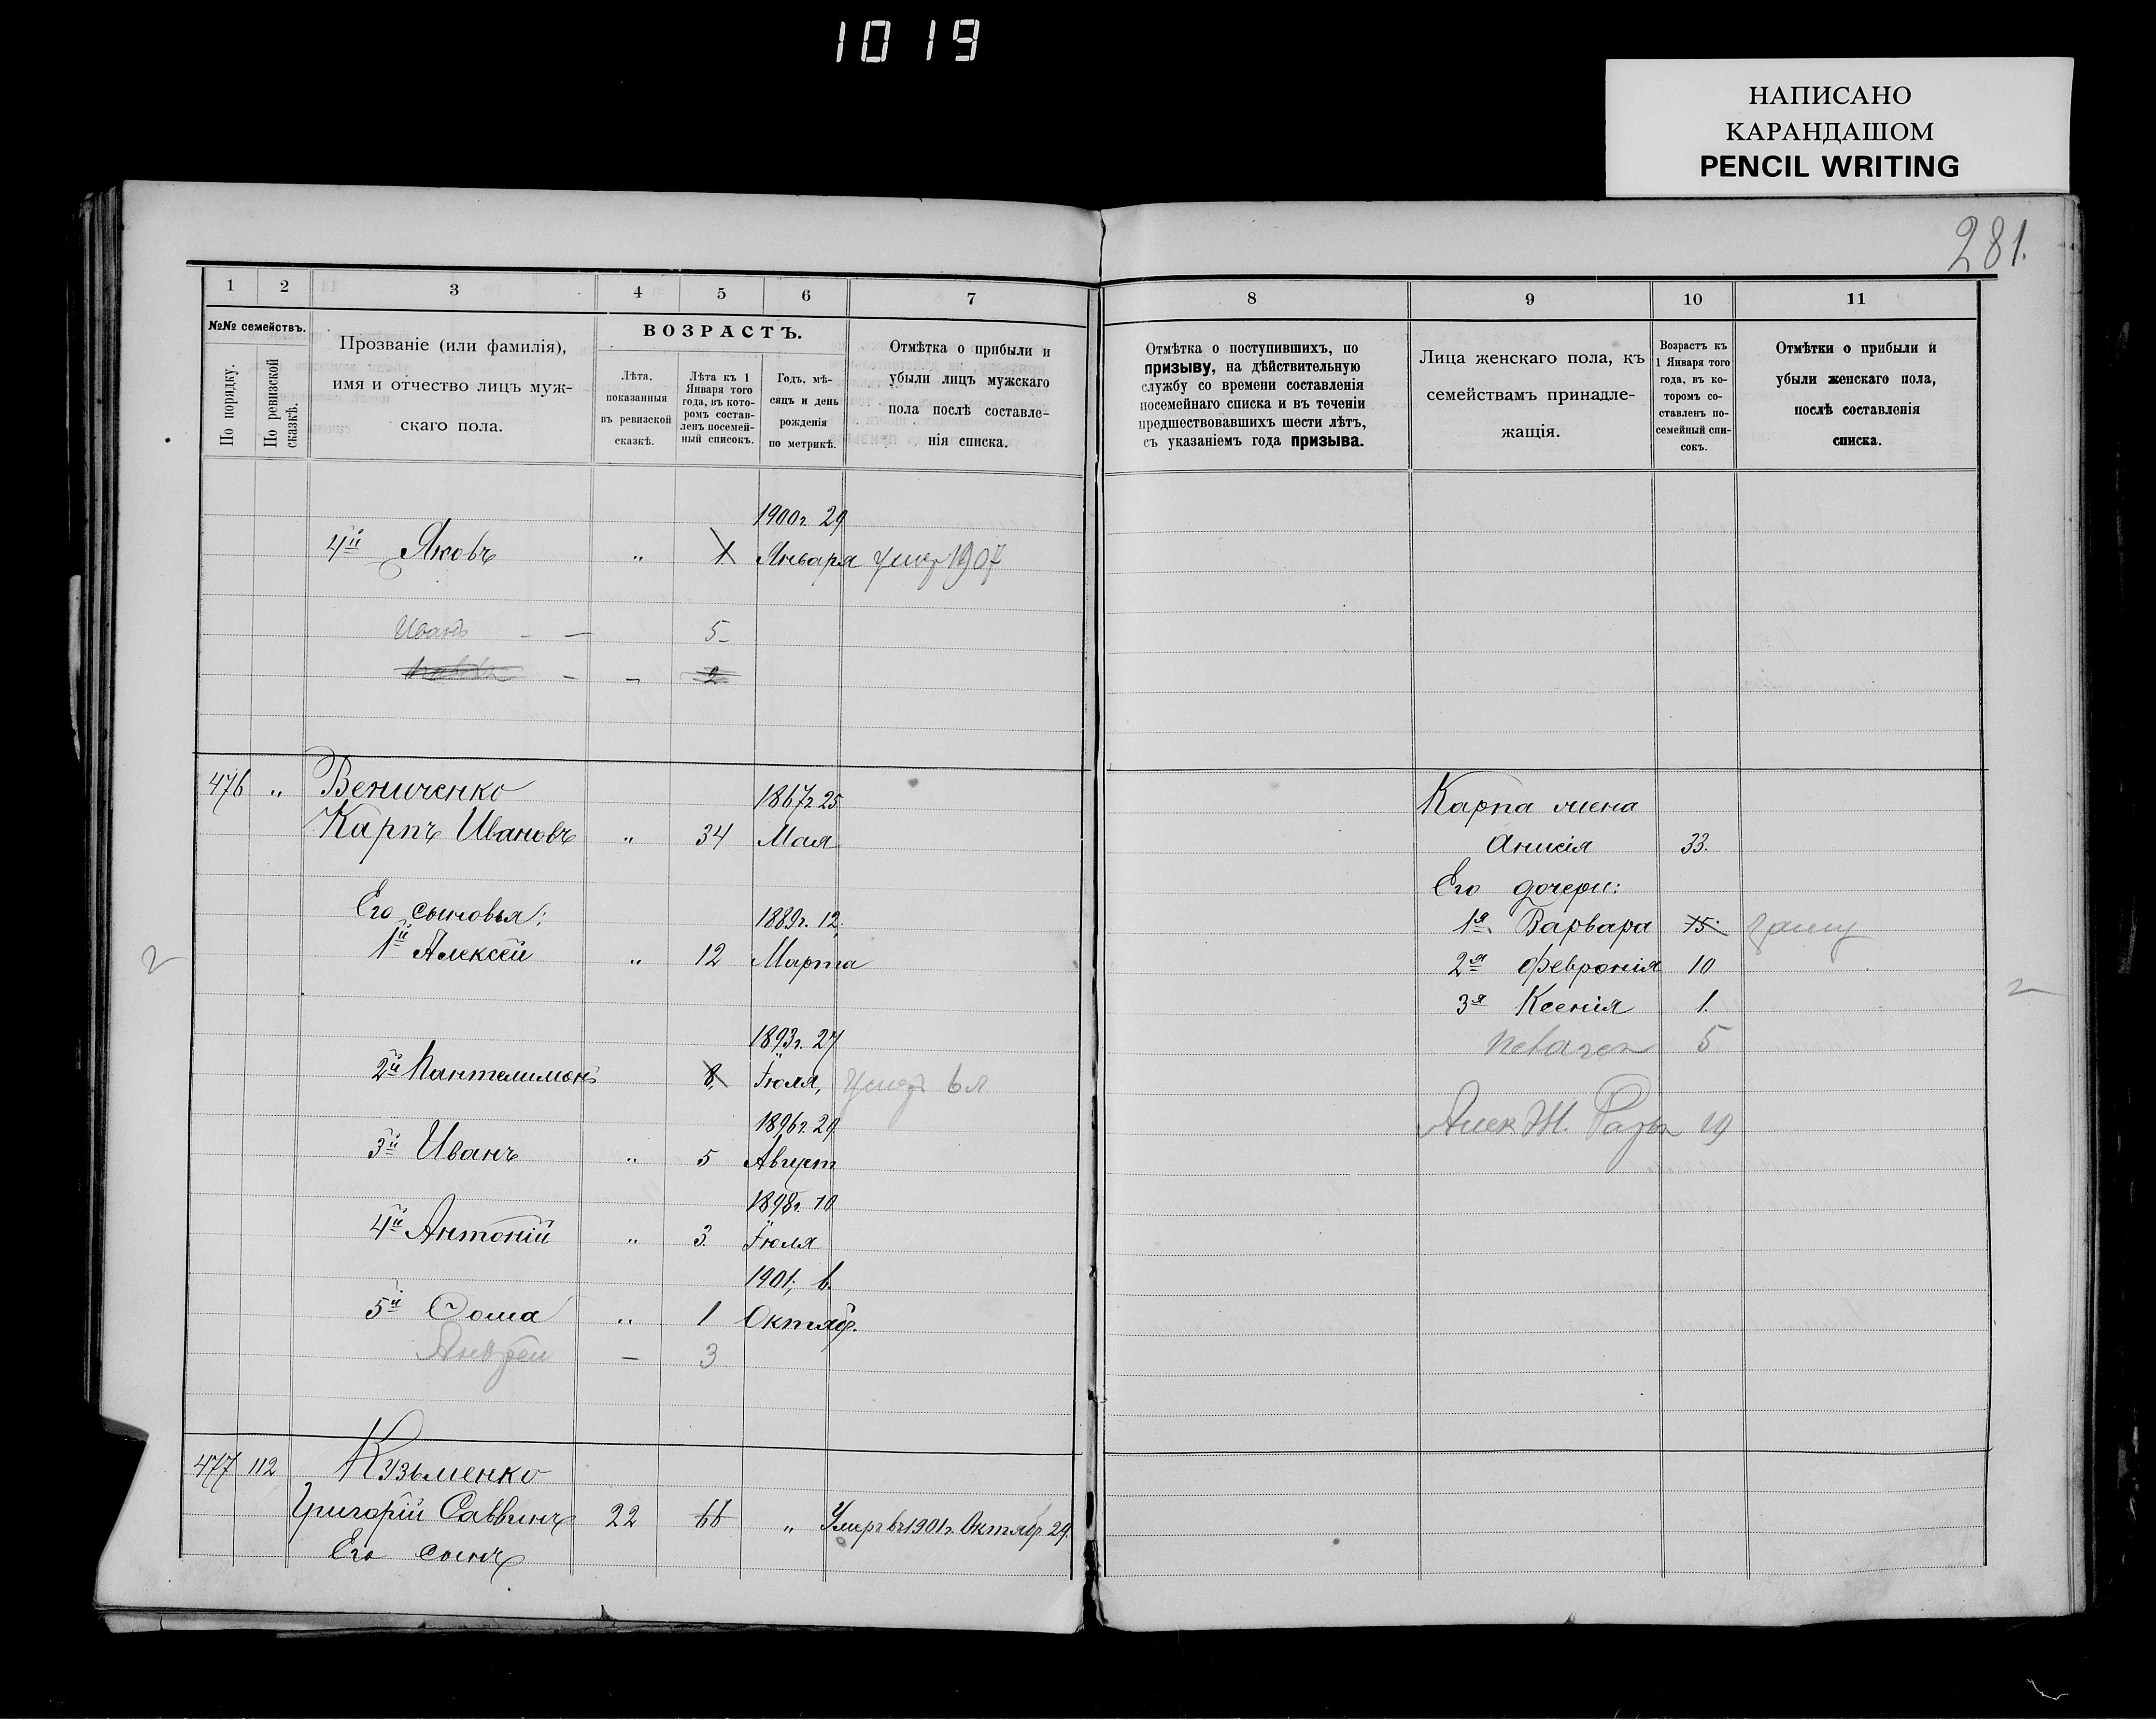 1019
НАПИСАНО
КАРАНДАШОМ
PENCIL WRITING
281.
1 2 3 4 5 6 7
№№ семействъ.
По порядку.
По ревизской сказкѣ.
Прозваніе (или фамилія),
имя и отчество лицъ муж-
скаго пола.
ВОЗРАСТЪ.
Лѣта,
показанныя
въ ревизской
сказкѣ.
Лѣта къ 1
Января того
года, въ кото-
ромъ состав-
ленъ посемей-
ный списокъ.
Годъ, мѣ-
сяцъ и день
рожденія
по метрикѣ.
Отмѣтка о прибыли и
убыли лицъ мужскаго
пола послѣ составле-
нія списка.
1900г. 29
4й Яковъ „ 1 Января умер 1907
Иванъ — — 5-
— — 2
476 „ Вениченко 1867г 25
Карпъ Ивановъ „ 34 Мая
Его сыновья: 1889г. 12.
1й Алексей „ 12 Марта
2
1893г. 27
2й Пантелимонъ 8 Іюля, Умеръ 6 л
1896г. 29
3й Иванъ „ 5 Август
1898г. 10
4й Антоній „ 3. Іюля
1901, 6.
5й Фома „ 1 Октябр.
Андрей — 3
477 112 Кузьменко
Григорій Саввинъ 22 66 „ Умеръ въ 1901г. Октябр 29.
Его сынъ
8 9 10 11
Отмѣтка о поступившихъ, по
призыву, на дѣйствительную
службу со времени составленія
посемейнаго списка и въ теченіи
предшествовавшихъ шести лѣтъ,
съ указаніемъ года призыва.
Лица женскаго пола, къ
семействамъ принадле-
жащія.
Возрастъ къ
1 Января того
года, въ ко-
торомъ со-
ставленъ по-
семейный спи-
сокъ.
Отмѣтки о прибыли и
убыли женскаго пола,
послѣ составленія
списка.
Карпа жена
Анисія 33.
Его дочери:
1я Варвара 15. замуж
2я Февронія 10
3я Ксенія 1.
2
5
Алек Ж. 19